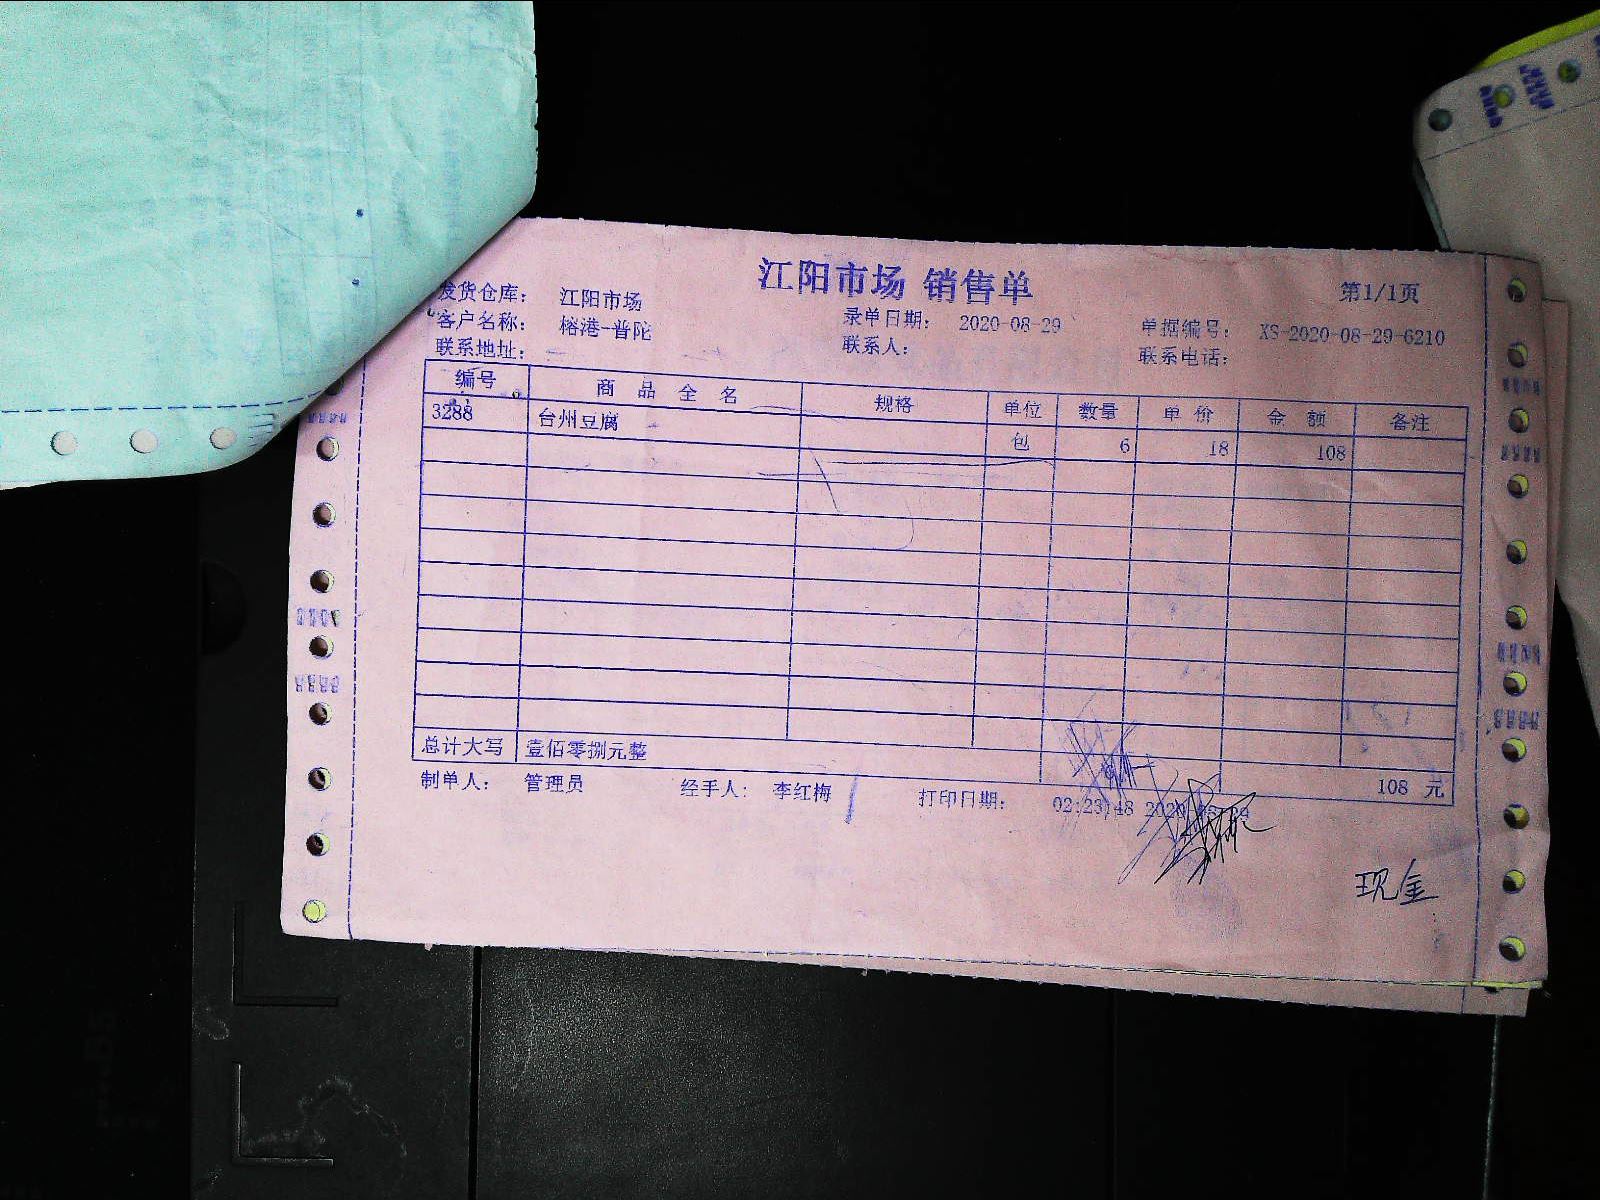 江阳市场 销售单
第1/1页
发货仓库： 江阳市场
客户名称： 榕港-普陀 录单日期： 2020-08-29 单据编号： XS-2020-08-29-6210
联系地址： 联系人： 联系电话：
编号 商品全名 规格 单位 数量 单价 金额 备注
3288 台州豆腐 包 6 18 108
总计大写 壹佰零捌元整 108 元
制单人： 管理员 经手人： 李红梅 打印日期： 02:23:48
现金